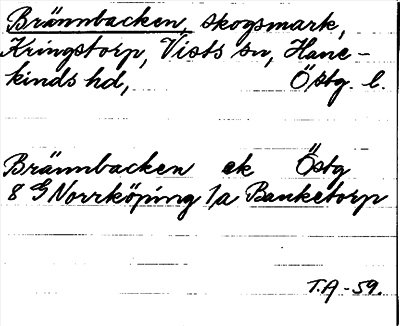 Brännbacken, skogsmark,
Kringstorp, Vists sn, Hane-
kinds hd, Östg. l.
Brännbacken ek Östg
8 G Norrköping 1a Banketorp
T.A -59.